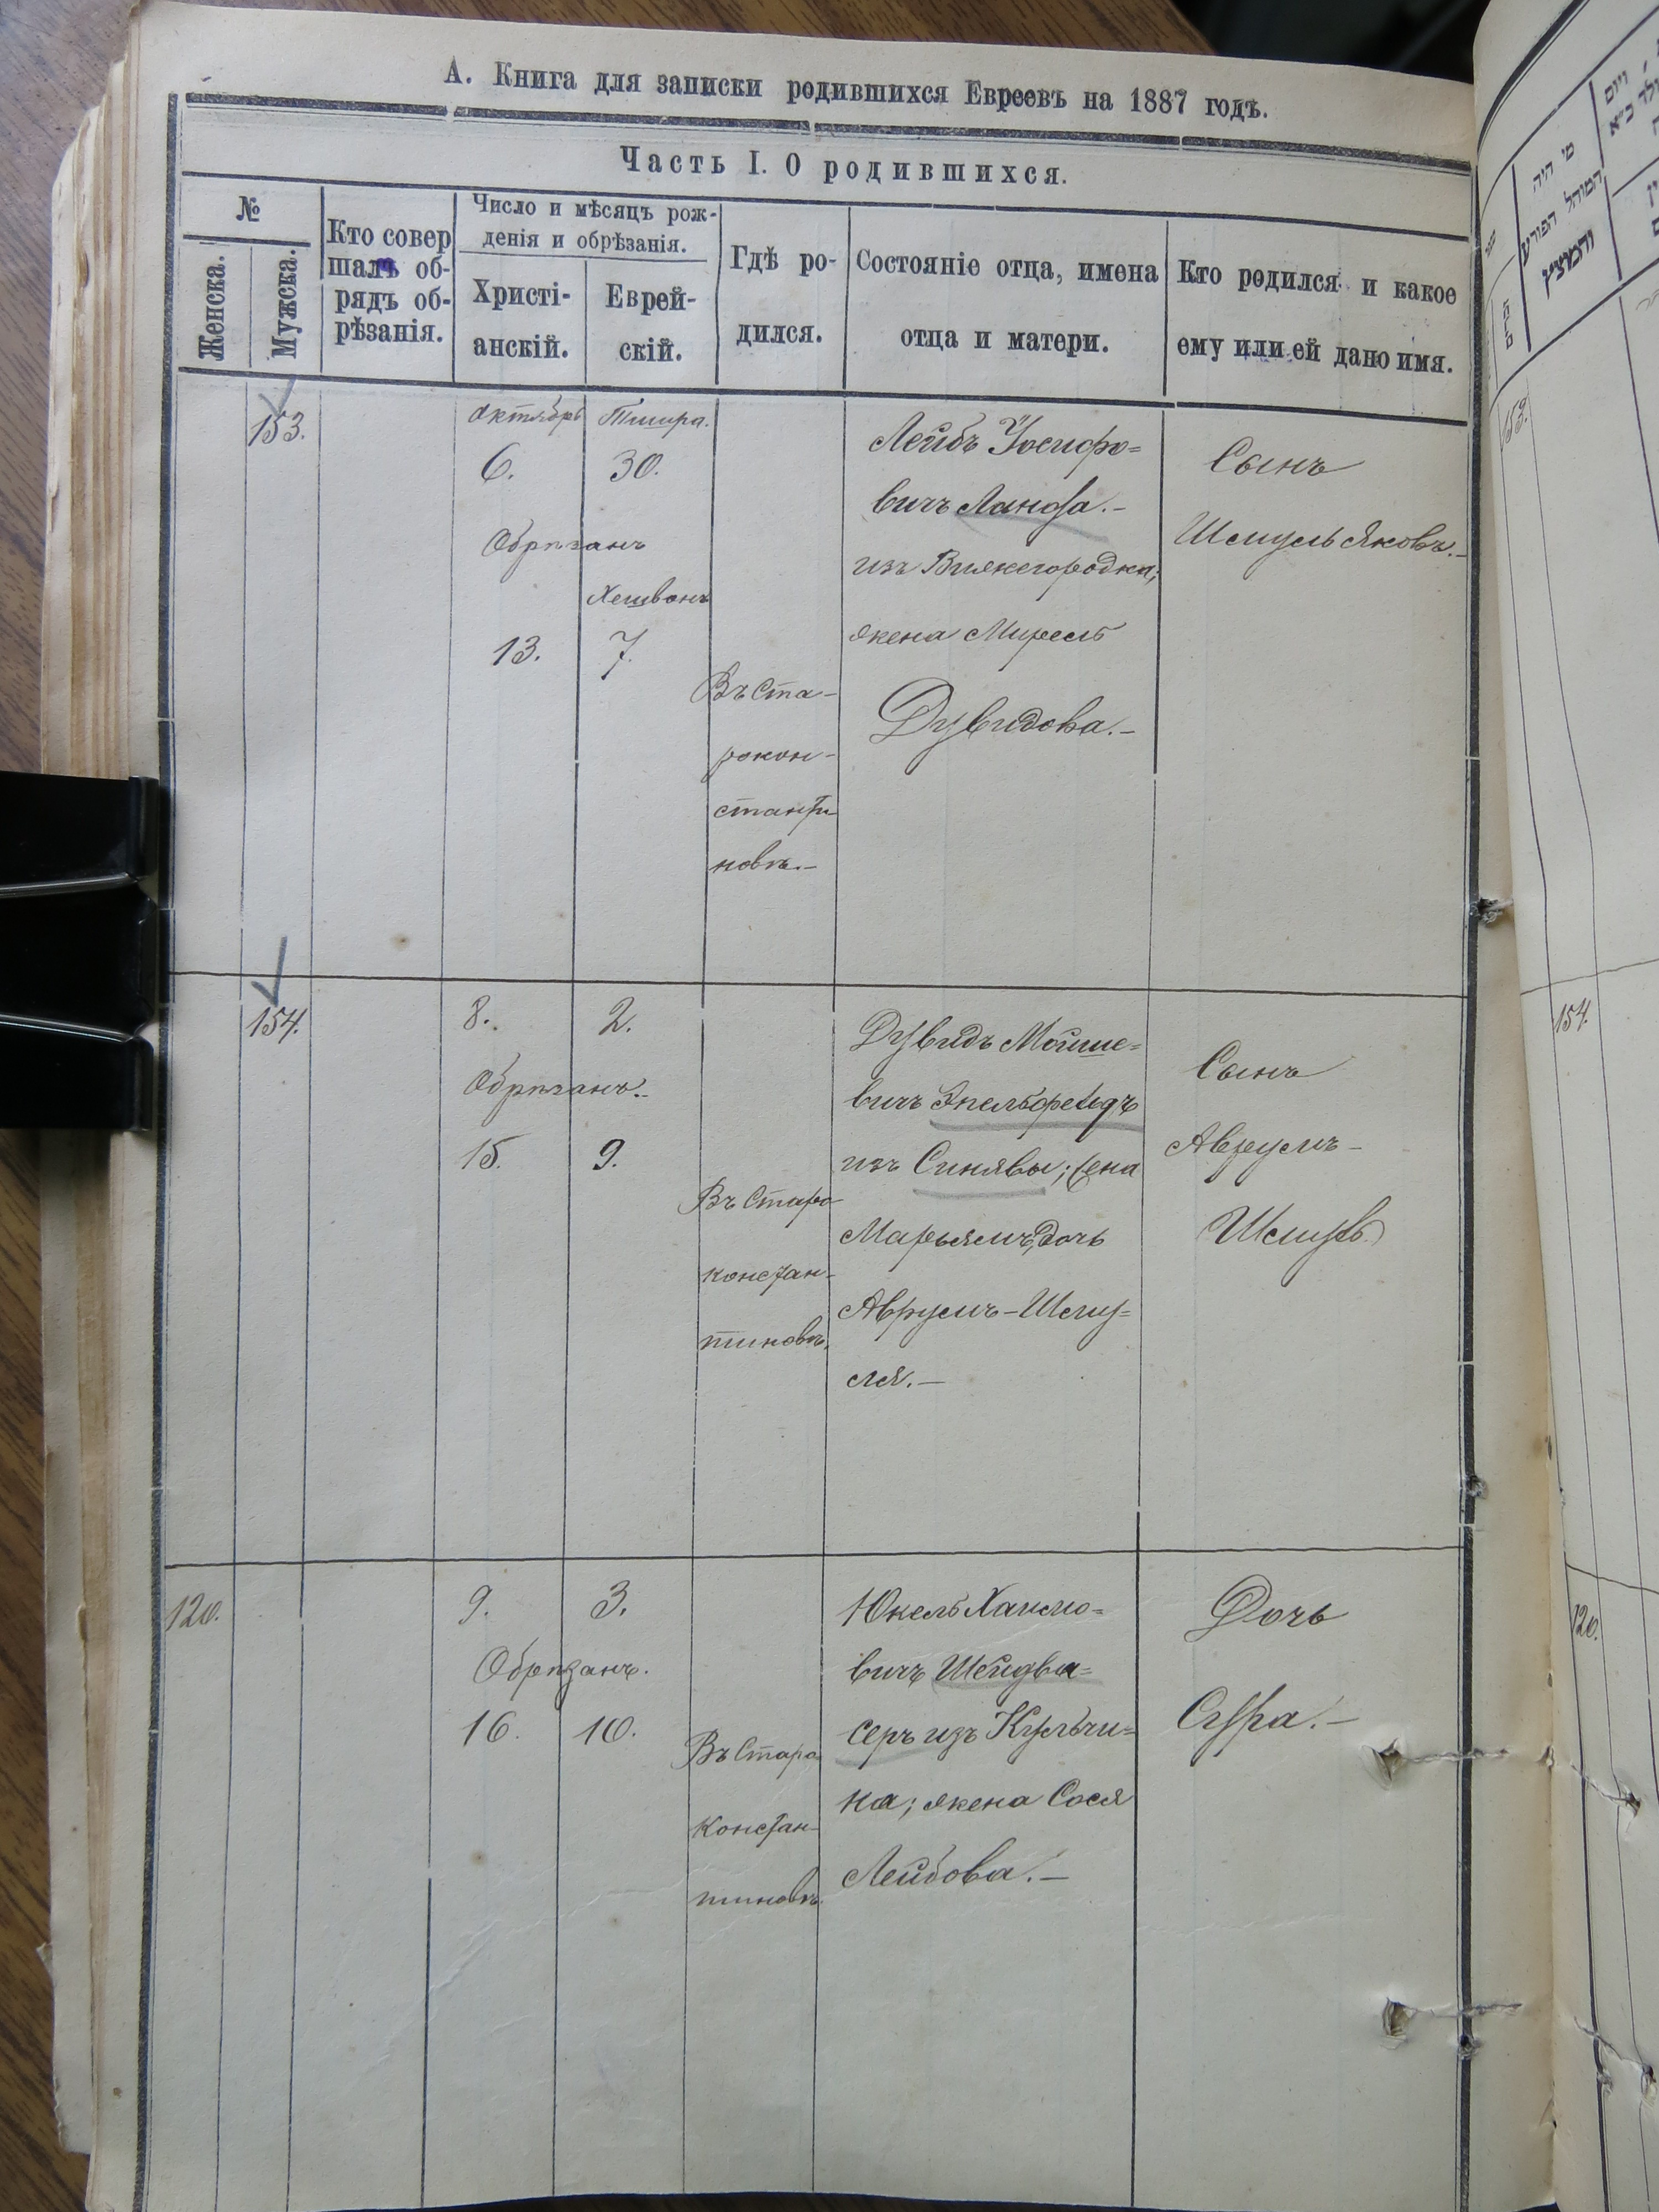 А. Книга для записки родившихся Евреевъ на 1887 годъ.
Часть I. О родившихся.
№
Женска.
Мужска.
Кто совер
шалъ об-
рядъ об-
рѣзанія.
Число и мѣсяцъ рож-
денія и обрѣзанія.
Христі-
анскій.
Еврей-
скій.
Гдѣ ро-
дился.
Состояніе отца, имена
отца и матери.
Кто родился и какое
ему или ей дано имя.
153.
октябрь
6.
Обрѣзанъ
13.
Тишра.
30.
Хешвонъ
7.
Въ Ста-
рокон-
станти-
новѣ.-
Лейбъ Іосифо=
вичъ Ланда.-
изъ
жена Мирель
Дувидова.-
Сынъ
Шмуль Яковъ.-
154.
8.
Обрѣзанъ.
15.
2.
9.
Въ Старо
констан-
тиновѣ.
Дувидъ Мойше=
вичъ Эпельфельдъ
изъ Синявы; жена
Марьямъ, дочь
Аврумъ-Шму=
ля.-
Сынъ
Аврумъ-
Шмуль
120.
9.
Обрѣзанъ.
16.
3.
10.
Въ Старо
констан-
тиновѣ
Юкель Хаимо=
вичъ Шейдва=
серъ изъ Кульчи=
на; жена Сося
Лейбова.-
Дочь
Сура.-
מי היה
המוהל הפורע
והמוצץ
153.
154.
120.